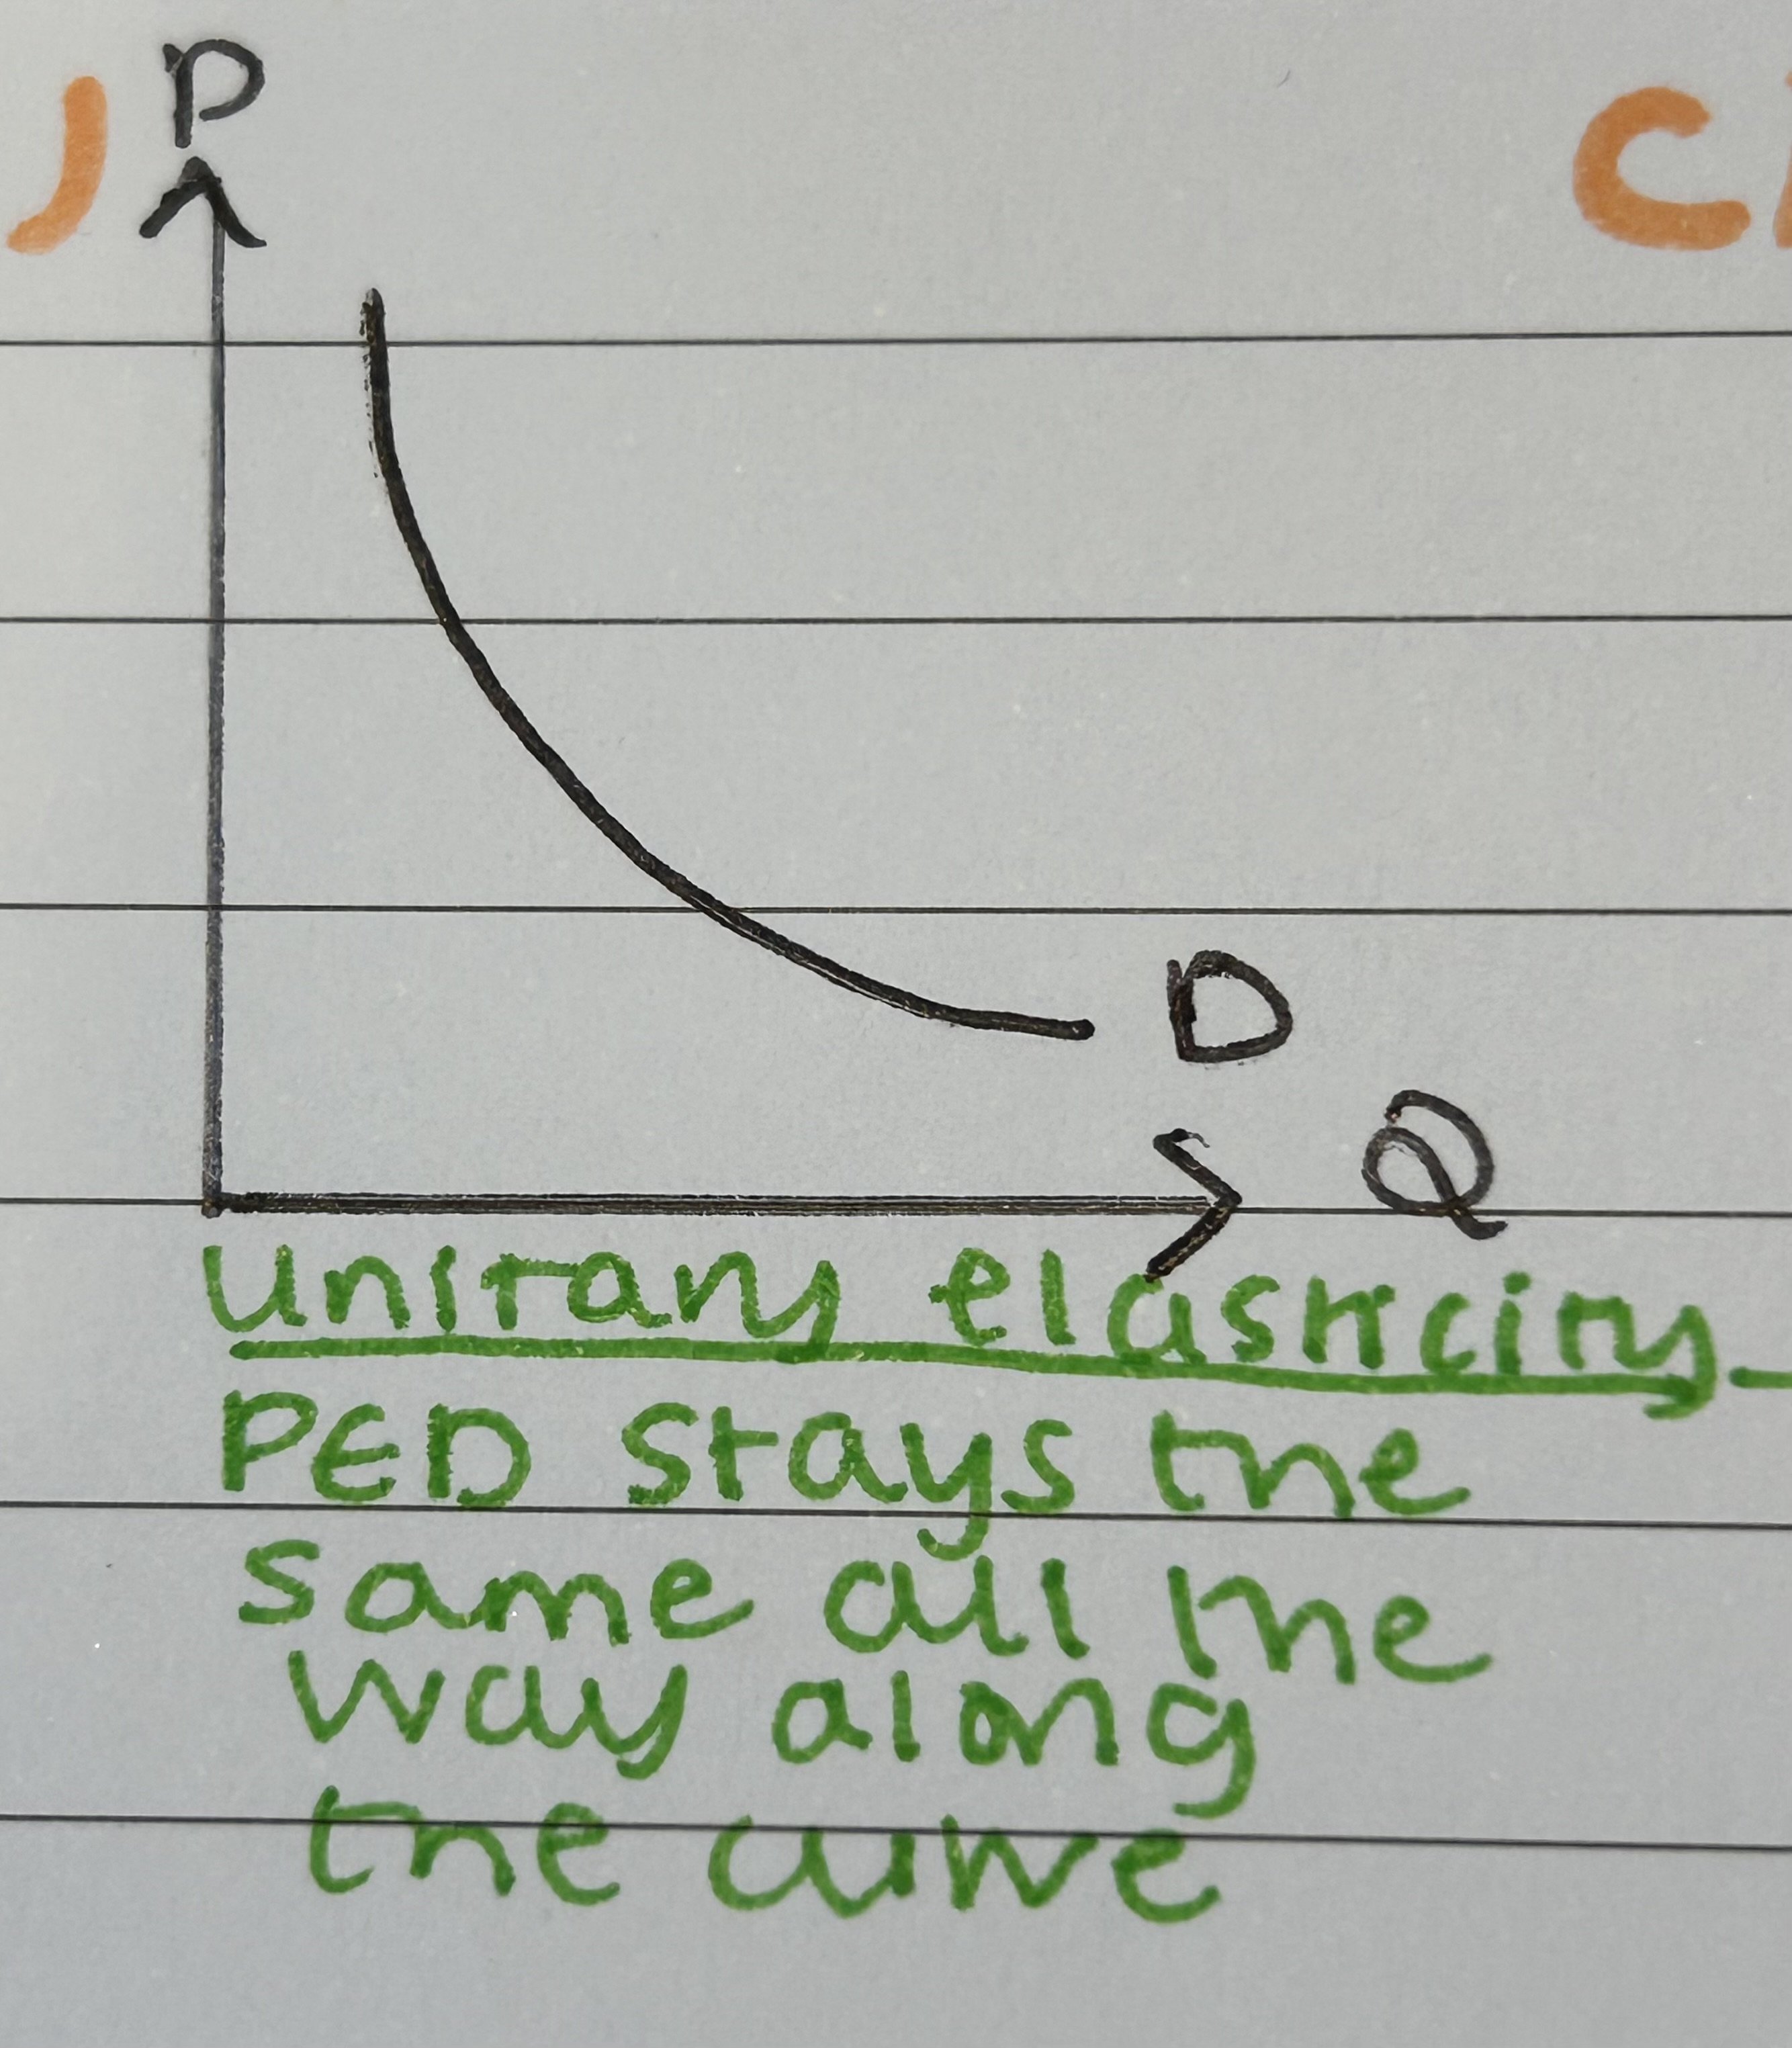 P
D
Q
unitary elasticity -
PED stays the
same all the
way along
the curve